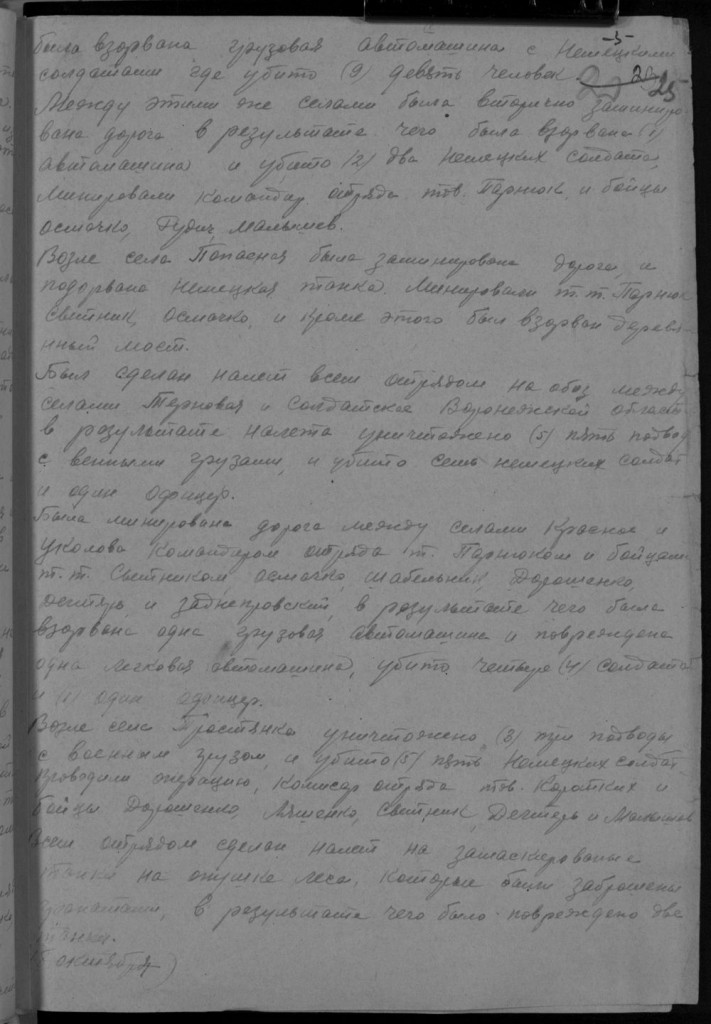 -5-
25
была взорвана грузовая автомашина с Немецкими
солдатами где убито (9) девять человек
Между этими же селами была вторично заминиро-
вана дорога в результате чего была взорвана (1)
автомашина и убито (2) два Немецких солдата,
Минировали командир отряда тов. Парнюк и бойцы
осмачко, Дудич, Малышев.
Возле села Попасная была заминирована дорога, и
подорвана Немецкая танка. Минировали т.т. Парнюк
Свитник, осмачко, и кроме этого был взорван деревя-
нный мост.
Был сделан налет всем отрядом на обоз между
селами Терновая и солдатское Воронежской области
в результате налета уничтожено (5) пять подвод
с венными грузами, и убито семь немецких солдат
и один офицер.
Была минирована дорога между селами Красное и
Уколова Командиром отряда т. Парнюком и бойцами
т.т. Свитником, осмачко, шабельник, Дорошенко,
Дегтярь, и заднепровский, в результате чего была
взорвана одна грузовая автомашина и повреждена
одна легковая автомашина, убито четыре (4) солдата
и (1) один офицер.
Возле села Простянка уничтожено (3) три подводы
с военным грузом, и убито (5) пять Немецких солдат
Проводили операцию, Комисар отряда тов. Коротких и
бойцы Дорошенко, Ляшенко, Свитник, Дегтерь и Малышев
Всем отрядом сделан налет на замаскированые
танки на опушке леса, которые были заброшены
гранатами, в результате чего было повреждено две
октября)